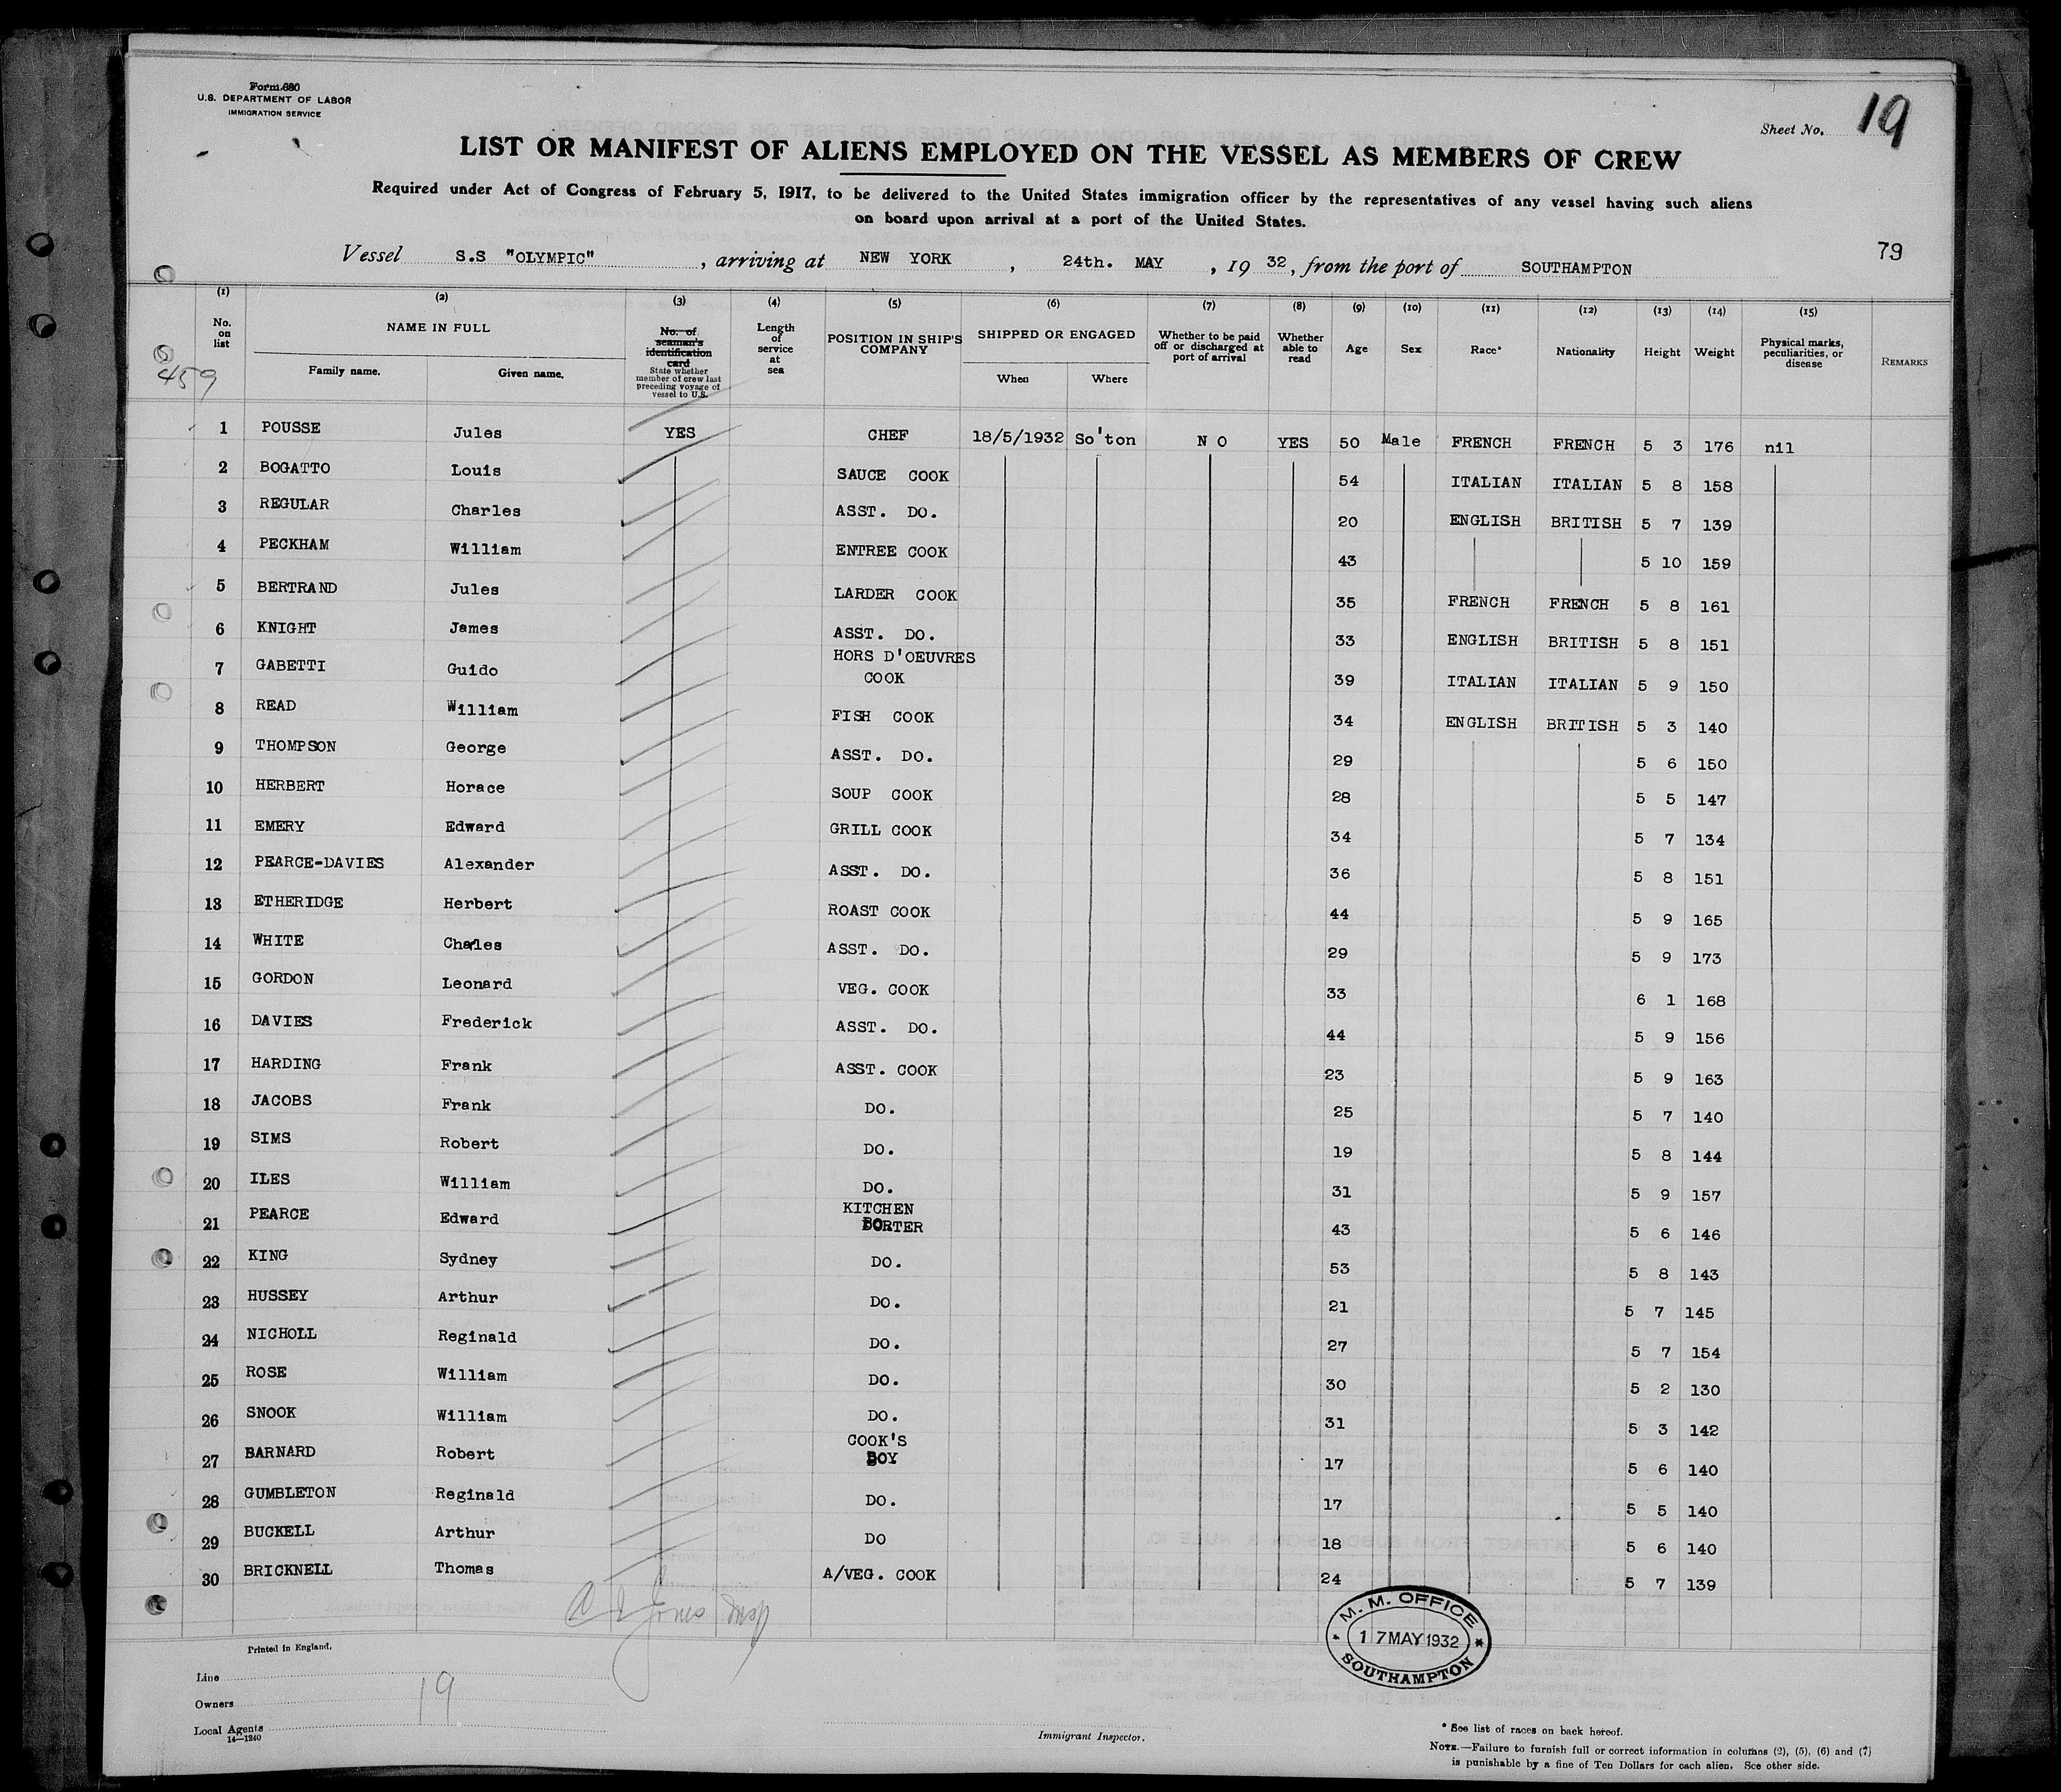 Form 680
U.S. DEPARTMENT OF LABOR
IMMIGRATION SERVICE
Sheet No. 19
LIST OR MANIFEST OF ALIENS EMPLOYED ON THE VESSEL AS MEMBERS OF CREW
Required under Act of Congress of February 5, 1917, to be delivered to the United States immigration officer by the representatives of any vessel having such aliens
on board upon arrival at a port of the United States.
79
Vessel S.S "OLYMPIC", arriving at NEW YORK, 24th. MAY, 19 32, from the port of SOUTHAMPTON
(1) (2) (3) (4) (5) (6) (7) (8) (9) (10) (11) (12) (13) (14) (15)
No. on list
NAME IN FULL
Family name. Given name.
No. of seaman's identification card
State whether member of crew last preceding voyage of vessel to U.S.
Length of service at sea
POSITION IN SHIP'S COMPANY
SHIPPED OR ENGAGED
When Where
Whether to be paid off or discharged at port of arrival
Whether able to read
Age
Sex
Race*
Nationality
Height
Weight
Physical marks, peculiarities, or disease
REMARKS
459
1 POUSSE Jules YES CHEF 18/5/1932 So'ton N O YES 50 Male FRENCH FRENCH 5 3 176 nil
2 BOGATTO Louis SAUCE COOK 54 ITALIAN ITALIAN 5 8 158
3 REGULAR Charles ASST. DO. 20 ENGLISH BRITISH 5 7 139
4 PECKHAM William ENTREE COOK 43 5 10 159
5 BERTRAND Jules LARDER COOK 35 FRENCH FRENCH 5 8 161
6 KNIGHT James ASST. DO. 33 ENGLISH BRITISH 5 8 151
7 GABETTI Guido HORS D'OEUVRES COOK 39 ITALIAN ITALIAN 5 9 150
8 READ William FISH COOK 34 ENGLISH BRITISH 5 3 140
9 THOMPSON George ASST. DO. 29 5 6 150
10 HERBERT Horace SOUP COOK 28 5 5 147
11 EMERY Edward GRILL COOK 34 5 7 134
12 PEARCE-DAVIES Alexander ASST. DO. 36 5 8 151
13 ETHERIDGE Herbert ROAST COOK 44 5 9 165
14 WHITE Charles ASST. DO. 29 5 9 173
15 GORDON Leonard VEG. COOK 33 6 1 168
16 DAVIES Frederick ASST. DO. 44 5 9 156
17 HARDING Frank ASST. COOK 23 5 9 163
18 JACOBS Frank DO. 25 5 7 140
19 SIMS Robert DO. 19 5 8 144
20 ILES William DO. 31 5 9 157
21 PEARCE Edward KITCHEN PORTER 43 5 6 146
22 KING Sydney DO. 53 5 8 143
23 HUSSEY Arthur DO. 21 5 7 145
24 NICHOLL Reginald DO. 27 5 7 154
25 ROSE William DO. 30 5 2 130
26 SNOOK William DO. 31 5 3 142
27 BARNARD Robert COOK'S BOY 17 5 6 140
28 GUMBLETON Reginald DO. 17 5 5 140
29 BUCKELL Arthur DO 18 5 6 140
30 BRICKNELL Thomas A/VEG. COOK 24 5 7 139
M. M. OFFICE
17 MAY 1932
SOUTHAMPTON
Printed in England.
Line
Owners
19
Local Agents
14—1240
Immigrant Inspector.
* See list of races on back hereof.
NOTE.—Failure to furnish full or correct information in columns (2), (5), (6) and (7)
is punishable by a fine of Ten Dollars for each alien. See other side.